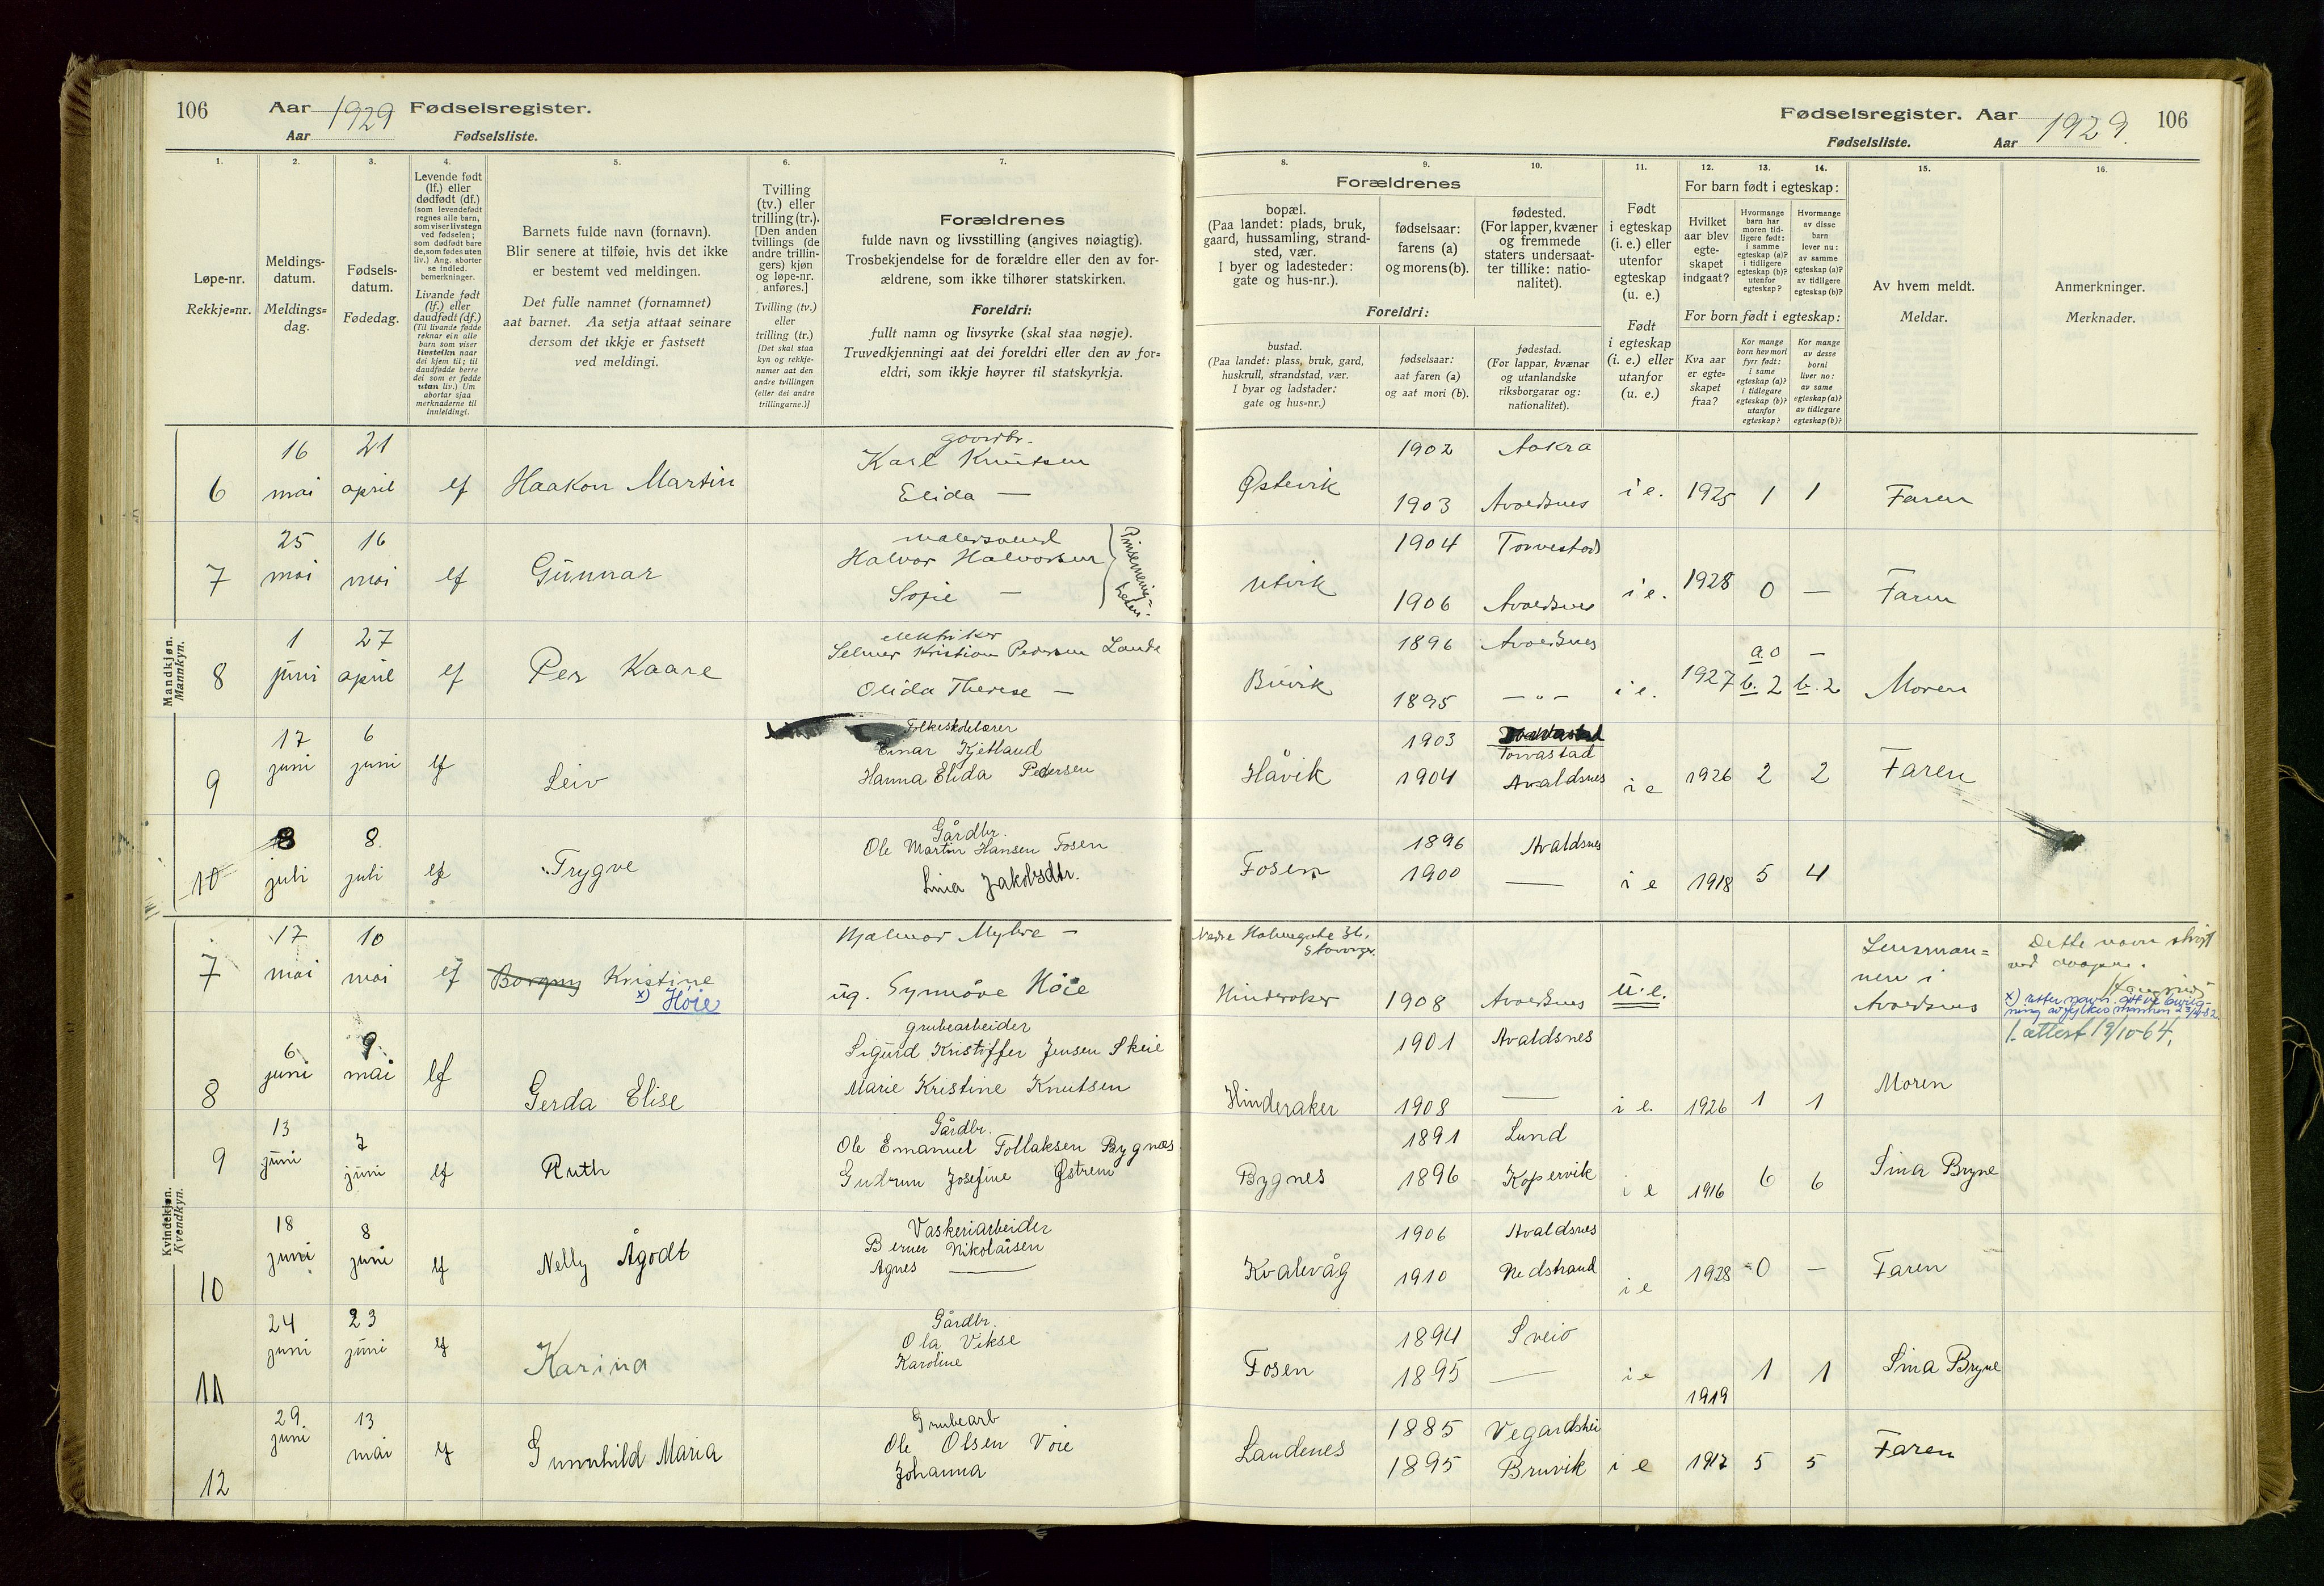 106
Aar 1929 Fødselsregister.
Aar Fødselsliste.
Fødselsregister. Aar 1929.
Fødselsliste. Aar
106
1.
2.
3.
4.
5.
6.
7.
8.
9.
10.
11.
12.
13.
14.
15.
16.
Løpe-nr.
Rekkje-nr.
Meldings-
datum.
Meldings-
dag.
Fødsels-
datum.
Fødedag.
Levende født
(lf.) eller
dødfødt (df.)
(som levendefødt
regnes alle barn,
som viser livstegn
ved fødselen;
som dødfødt bare
de, som fødes uten
liv.) Ang. aborter
se indled.
bemerkninger.
Livande født
(lf.) eller
daudfødt (df.)
(Til livande fødde
reknar ein alle
barn som viser
livsteikn naar
dei kjem til; til
daudfødde berre
dei som er fødde
utan liv.) Um
abortar sjaa
merknaderne til
innleidingi.
Barnets fulde navn (fornavn).
Blir senere at tilføie, hvis det ikke
er bestemt ved meldingen.
Det fulle namnet (fornamnet)
aat barnet. Aa setja attaat seinare
dersom det ikkje er fastsett
ved meldingi.
Tvilling
(tv.) eller
trilling (tr.).
[Den anden
tvillings (de
andre trillin-
gers) kjøn
og løpe-nr.
anføres.]
Tvilling (tv.)
eller
trilling (tr.)
[Det skal staa
kyn og rekkje-
numer aat den
andre tvillingen
(eller dei andre
trillingarne.)]
Forældrenes
fulde navn og livsstilling (angives nøiagtig).
Trosbekjendelse for de forældre eller den av for-
ældrene, som ikke tilhører statskirken.
Foreldri:
fullt namn og livsyrke (skal staa nøgje).
Truvedkjenningi aat dei foreldri eller den av for-
eldri, som ikkje høyrer til statskyrkja.
Forældrenes
bopæl.
(Paa landet: plads, bruk,
gaard, hussamling, strand-
sted, vær.
I byer og ladesteder:
gate og hus-nr.).
fødselsaar:
farens (a)
og morens (b).
fødested.
(For lapper, kvæner
og fremmede
staters undersaat-
ter tillike: natio-
nalitet).
Foreldri:
bustad.
(Paa landet: plass, bruk, gard,
huskrull, strandstad, vær.
I byar og ladstader:
gate og hus-nr.)
fødselsaar:
aat faren (a)
og aat mori (b).
fødestad.
(For lappar, kvænar
og utanlandske
riksborgarar og:
nationalitet).
Født
i egteskap
(i. e.) eller
utenfor
egteskap
(u. e.)
Født
i egteskap
(i. e.) eller
utanfor
(u. e.)
For barn født i egteskap:
Hvilket
aar blev
egte-
skapet
indgaat?
Hvormange
barn har
moren tid-
ligere født:
i samme
egteskap (a)?
i tidligere
egteskap (b)?
utenfor
egteskap?
Hvormange
av disse
barn
lever nu:
av samme
egteskap (a)?
av tidligere
egteskap (b)?
For born født i egteskap:
Kva aar
er egte-
skapet
fraa?
Kor mange
born hev mori
fyrr født:
i same
egteskap (a)?
i tidlegare
egteskap (b)?
utanfor
egteskap?
Kor mange
av desse
borni
liver no:
av same
egteskap (a)?
av tidlegare
egteskap (b)?
Av hvem meldt.
Meldar.
Anmerkninger.
Merknader.
Mandkjøn.
Mannkyn.
6 16 mai 21 april lf Haakon Martin
gaardbr.
Karl Knutsen
Elida —
Østevik 1902 Aakra
1903 Avaldsnes i e. 1925 1 1 Faren
7 25 mai 16 mai lf Gunnar
malersvend
Halvor Halvorsen
Sofie —
Pinsemenig-
heten.
Utvik 1904 Torvestad
1906 Avaldsnes i e. 1928 0 — Faren
8 1 juni 27 april lf Per Kaare
elektriker
Selmer Kristian Pedersen Lande
Olida Therese —
Buvik 1896 Avaldsnes
1895 — " — i e. 1927 a. 0 —
b. 2 b. 2 Moren
9 17 juni 6 juni lf Leiv
Folkeskolelærer
Einar Kjetland
Hanna Elida Pedersen
Håvik 1903 Torvastad
1904 Avaldsnes i e 1926 2 2 Faren
10 8 juli 8. juli lf Trygve
Gårdbr.
Ole Martin Hansen Fosen
Lina Jakobsdtr.
Fosen 1896 Avaldsnes
1900 — i e 1918 5 4
Kvindekjøn.
Kvendkyn.
7 17 mai 10 mai lf Borgny Kristine
x) Høie
Hjalmar Myhre —
ug. Synnøve Høie
Nedre Holmegate
Stavanger.
Hinderaker 1908 Avaldsnes u. e.
Lensman-
nen i
Avaldsnes
Dette navn strøket
ved daapen.
1. attest 19/10-64.
8 6 juni 9 mai lf Gerda Elise
grubearbeider
Sigurd Kristoffer Jensen Skeie
Marie Kristine Knutsen
Hinderaker 1901 Avaldsnes
1908 — i e. 1926 1 1 Moren
9 13 juni 7 juni lf Ruth
Gårdbr.
Ole Emanuel Tollaksen Bygnes
Gudrun Josefine Østrem
Bygnes 1891 Lund
1896 Kopervik i e 1916 6 6 Sina Bryne
10 18 juni 8 juni lf Nelly Ågodt
Vaskeriarbeider
Berner Nikolaisen
Agnes —
Kvalevåg 1906 Avaldsnes
1910 Nedstrand i e 1928 0 — Faren
11 24 juni 23 juni lf Karina
Gårdbr.
Ola Vikse
Karoline
Fosen 1894 Sveio
1895 — i e 1919 1 1 Sina Bryne
12 29 juni 13 mai lf Gunnhild Maria
Grubearb
Ole Olsen Voie
Johanna
Landenes 1885 Vegardshei
1895 Bruvik i e 1917 5 5 Faren